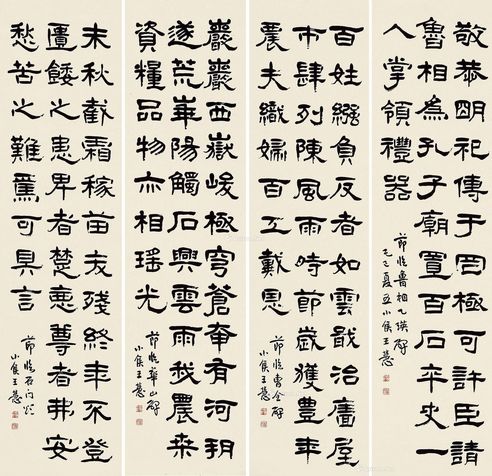 敬恭明祀傳于罔極可許臣請
魯相為孔子廟置百石卒史一
人掌領禮器
節临魯相乙瑛碑
小侯王慧
百姓繦負反者如雲戢治廧屋
市肆列陳風雨時節歲獲豐年
農夫織婦百工戴恩
節临曹全碑
小侯王慧
巖巖西嶽峻極穹蒼奄有河朔
遂荒華陽觸石興雲雨我農桑
資糧品物亦相瑤光
節临華山碑
小侯王慧
末秋截霜稼苗夭殘終年不登
匱餧之患卑者楚惡尊者弗安
愁苦之難焉可具言
節临石門頌
小侯王慧